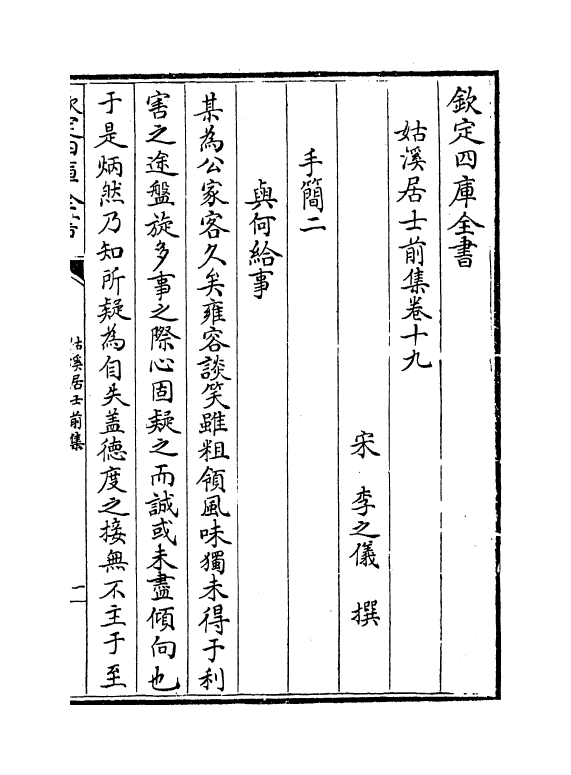 欽定四庫全書
姑溪居士前集卷十九
宋 李之儀 撰
手簡二
與何給事
某為公家客久矣雍容談笑雖粗領風味獨未得于利
害之途盤旋多事之際心固疑之而誠或未盡傾向也
于是炳然乃知所疑為自失盖德度之接無不主于至
欽定四庫全書
姑溪居士前集
一